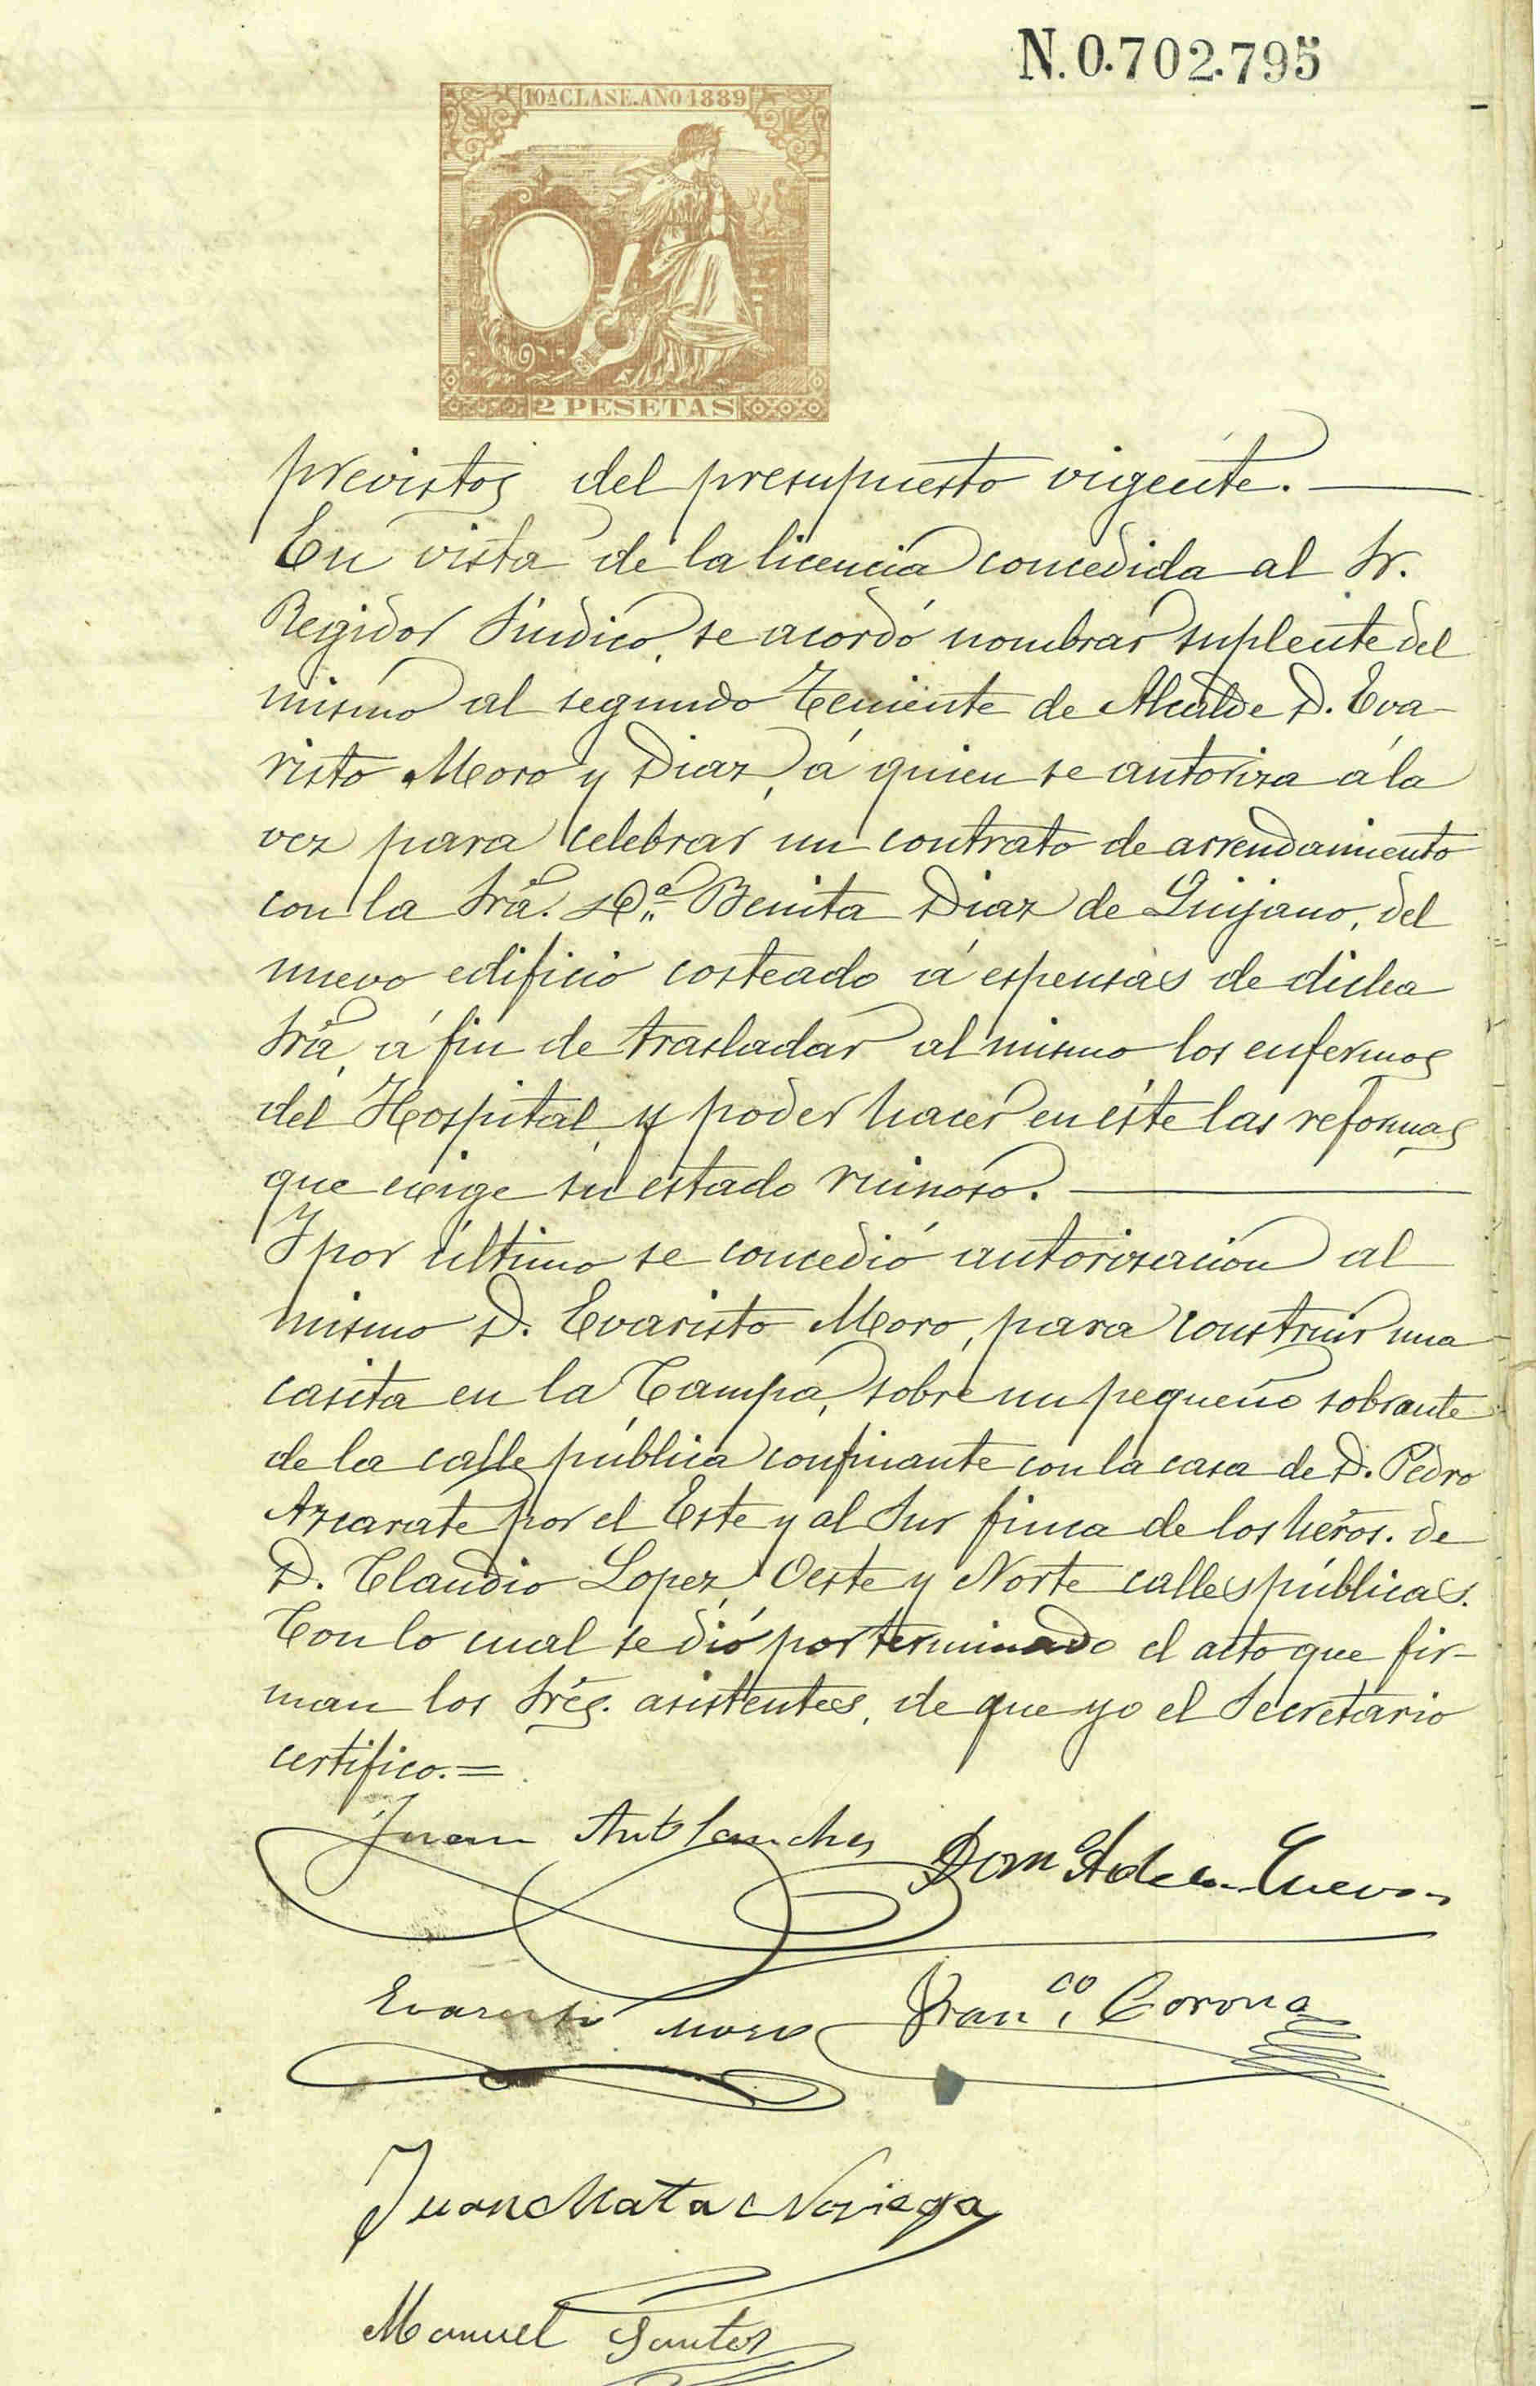 N.0.702.795
10ª CLASE. AÑO 1889
2 PESETAS
previstos del presupuesto vigente.
En vista de la licencia concedida al Sr.
Regidor Síndico, se acordó nombrar suplente del
mismo al segundo Teniente de Alcalde D. Eva-
risto Moro y Diaz, á quien se autoriza á la
vez para celebrar un contrato de arrendamiento
con la Srã. Dª Benita Diaz de Quijano, del
nuevo edificio costeado á espensas de dicha
Srã, á fin de trasladar al mismo los enfermos
del Hospital, y poder hacer en éste las reformas
que exige su estado ruinoso.
Y por último se concedió autorizacion al
mismo D. Evaristo Moro, para construir una
casita en la Campa, sobre un pequeño sobrante
de la calle pública confinante con la casa de D. Pedro
Azcarate por el Este y al Sur finca de los hẽros. de
D. Claudio Lopez, Oeste y Norte calles públicas.
Con lo cual se dió por terminado el acto que fir-
man los Srẽs. asistentes, de que yo el Secretario
certifico.=
Juan Antº Sanchez Domº G. de la Cueva
Evaristo Moro Franco. Corona
Juan Mata Noriega
Manuel Santos